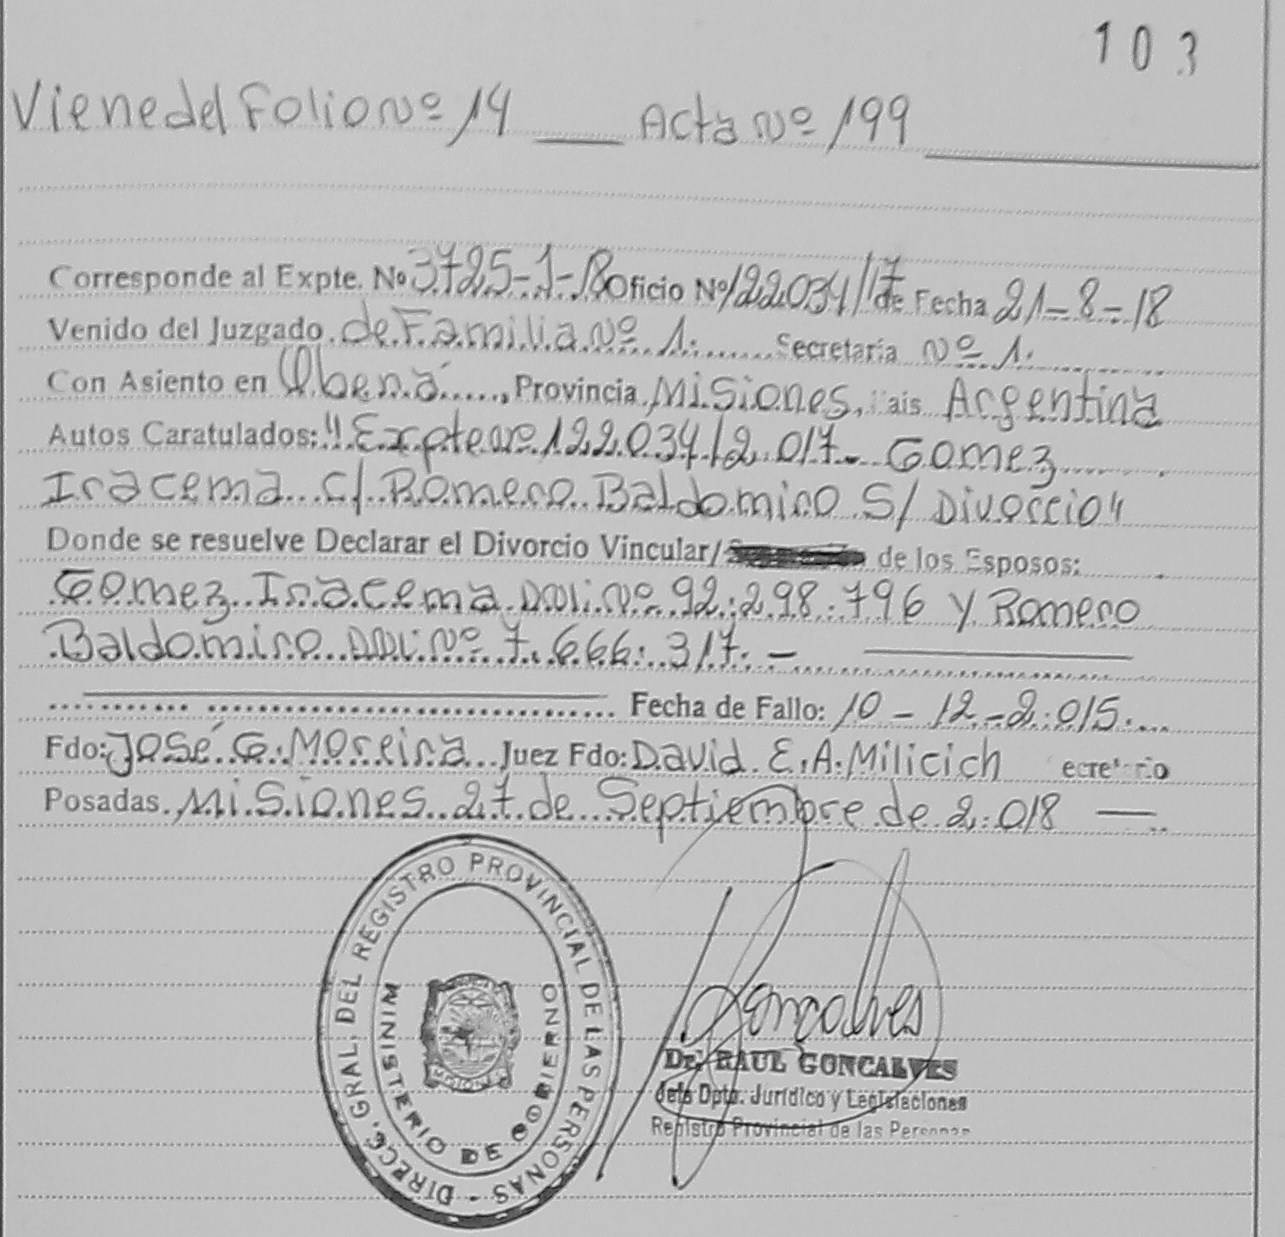 103
Viene del Folio Nº 14 — Acta Nº 199
Corresponde al Expte. Nº 3725-1-18 Oficio Nº 122034/17 de Fecha 21-8-18
Venido del Juzgado de Familia Nº 1. Secretaría Nº 1.
Con Asiento en Oberá, Provincia Misiones, País Argentina
Autos Caratulados: "Expte Nº 122.034/2.017- Gomez
Iracema c/ Romero Baldomiro S/ Divorcio"
Donde se resuelve Declarar el Divorcio Vincular/ de los Esposos:
Gomez Iracema DNI. Nº 92.298.796 y Romero
Baldomiro DNI. Nº 7.666.317.-
Fecha de Fallo: 10-12-2.015.
Fdo: José G. Moreira Juez Fdo: David E. A. Milicich ecretario
Posadas Misiones 27 de Septiembre de 2.018 —
DIRECC. GRAL. DEL REGISTRO PROVINCIAL DE LAS PERSONAS -
MINISTERIO DE GOBIERNO
MISIONES
Goncalves
Dr. RAUL GONCALVES
Jefe Dpto. Jurídico y Legislaciones
Registro Provincial de las Personas